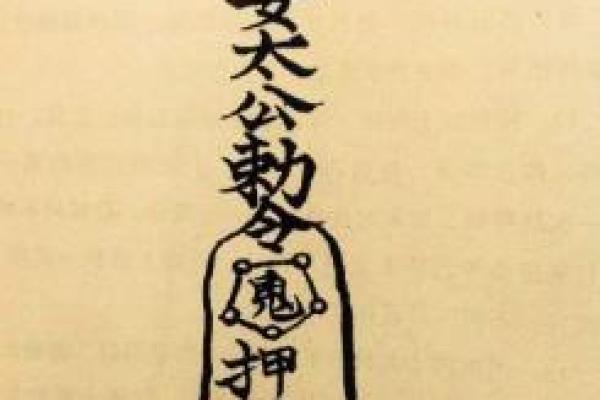 太公勅令
鬼
押